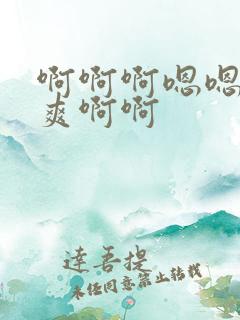 啊啊啊嗯嗯
爽啊啊
達吾提
未经同意禁止转载